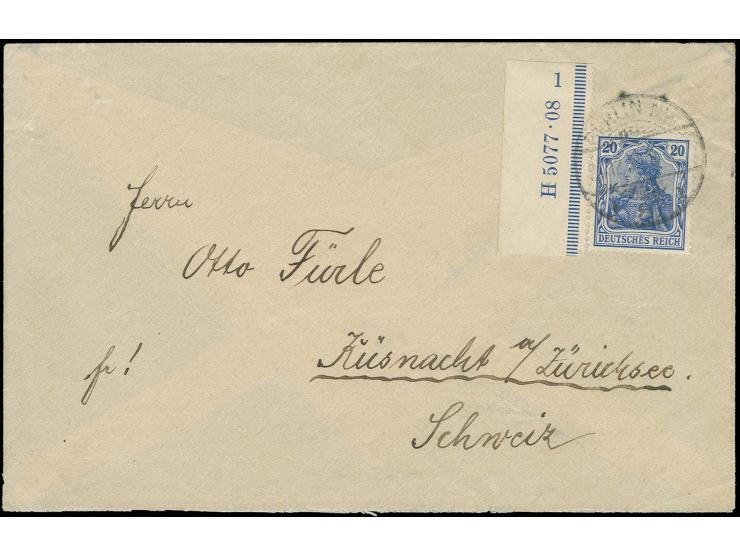 H 5077·08 1
BERLIN
20 20
DEUTSCHES REICH
Herrn
Otto Fürle
fr!
Küsnacht a/Zürichsee.
Schweiz